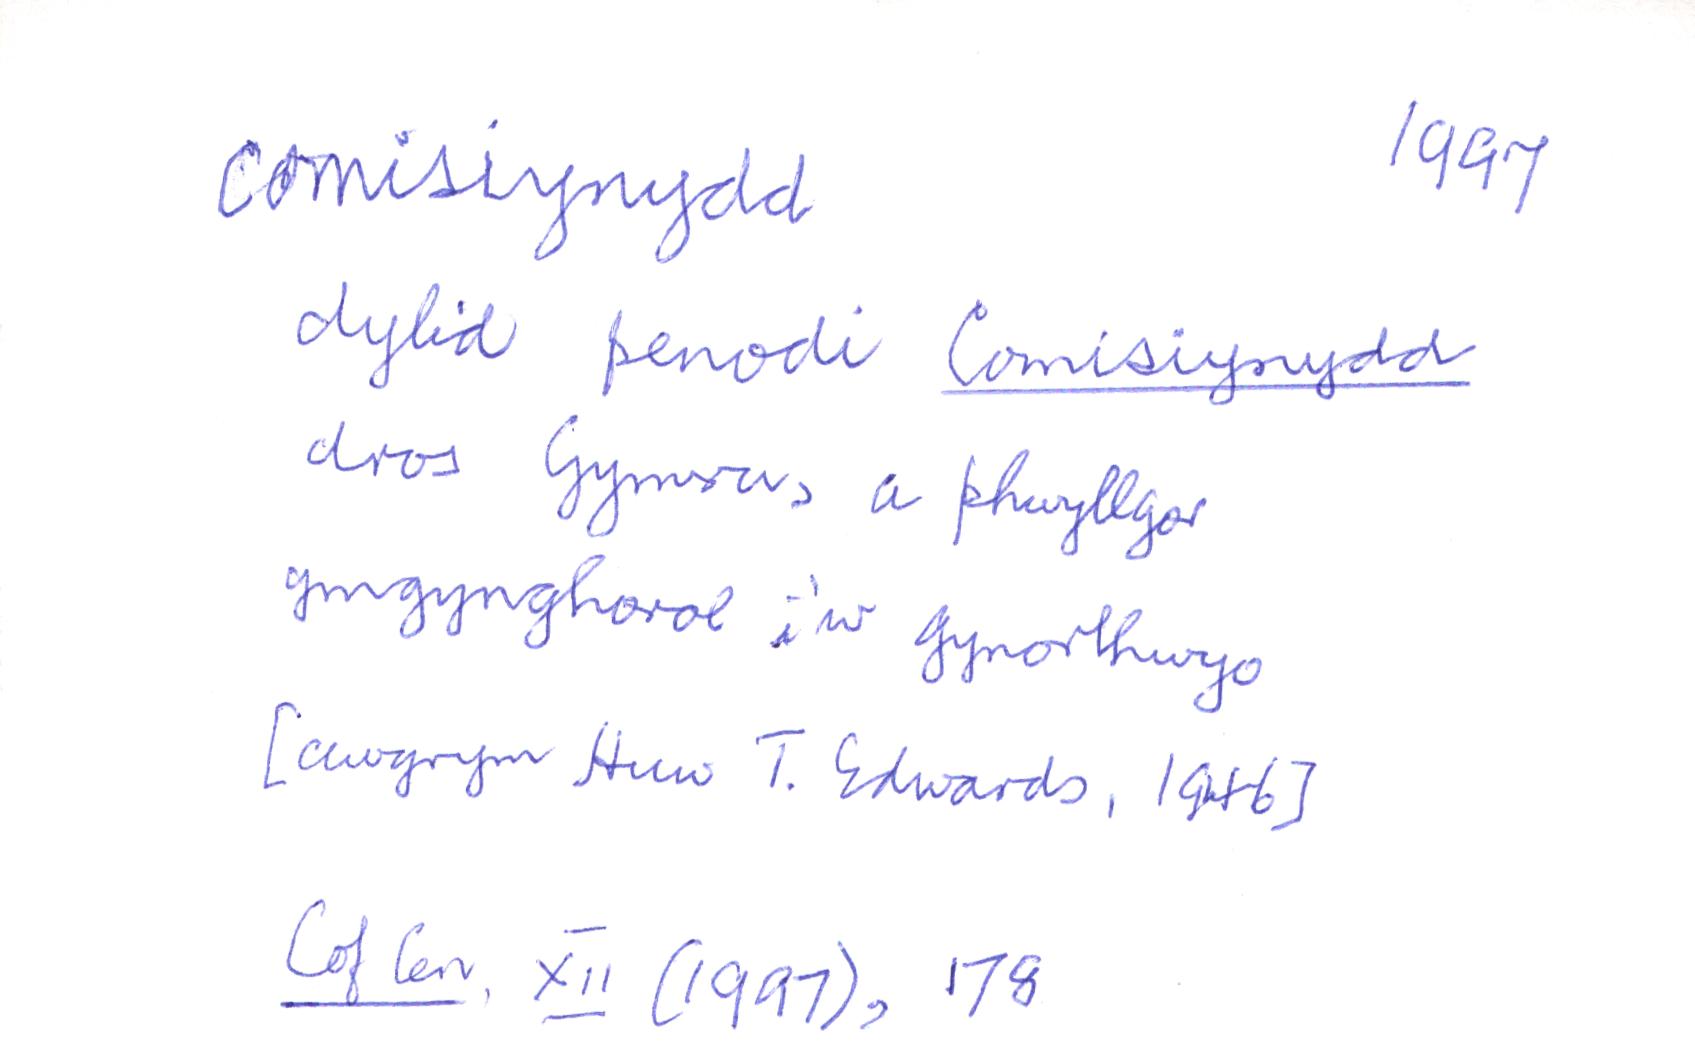 comisiynydd 1997
dylid penodi Comisiynydd
dros Gymru, a phwyllgor
ymgynghorol i'w gynorthwyo
[awgrym Huw T. Edwards, 1946]
Cof Cen, XII (1997), 178